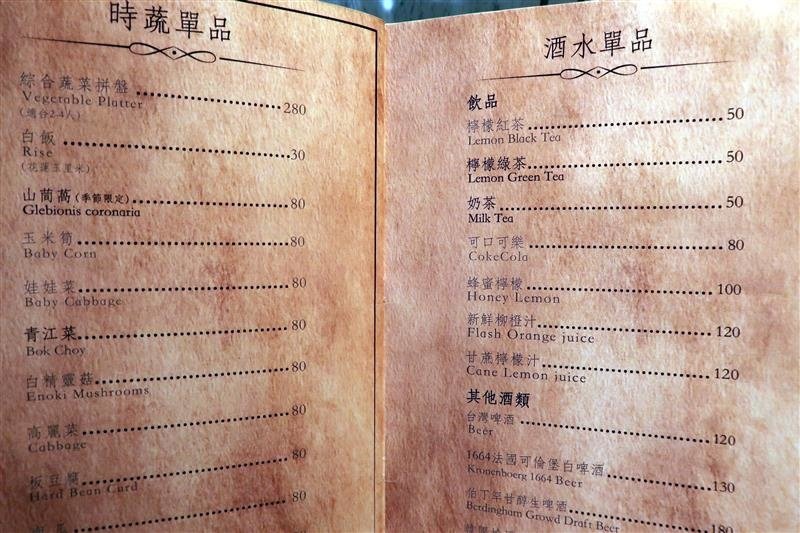 時蔬單品
綜合蔬菜拼盤 280
Vegetable Platter
(適合2-4人)
白飯 30
Rise
(花蓮玉里米)
山茼萵(季節限定) 80
Glebionis coronaria
玉米筍 80
Baby Corn
娃娃菜 80
Baby Cabbage
青江菜 80
Bok Choy
白精靈菇 80
Enoki Mushrooms
高麗菜 80
Cabbage
板豆腐 80
Hard Bean Curd
80
酒水單品
飲品
檸檬紅茶 50
Lemon Black Tea
檸檬綠茶 50
Lemon Green Tea
奶茶 50
Milk Tea
可口可樂 80
CokeCola
蜂蜜檸檬 100
Honey Lemon
新鮮柳橙汁 120
Flash Orange juice
甘蔗檸檬汁 120
Cane Lemon juice
其他酒類
台灣啤酒 120
Beer
1664法國可倫堡白啤酒 130
Kronenboerg 1664 Beer
伯丁罕甘醇生啤酒 180
Berdingham Growd Draft Beer